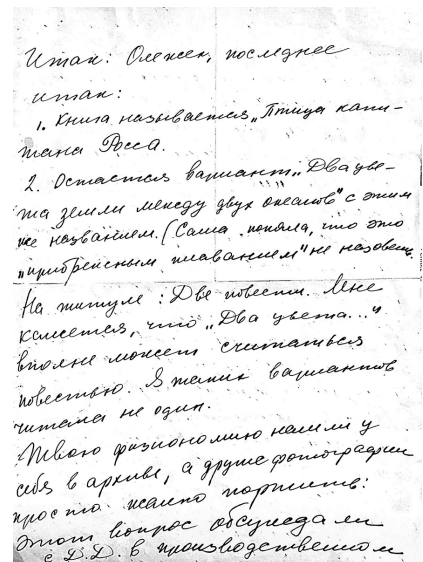 Итак: Олежек, последнее
итак:
1. Книга называется „Птица капи-
тана Росса.
2. Остается вариант „Два цве-
та земли между двух океанов" с этим
же названием. (Сама поняла, что это
„прибрежным плаванием" не назовешь.
На титуле: Две повести. Мне
кажется, что „Два цвета..."
вполне может считаться
повестью. Я таких вариантов
читала не один.
Твою физиономию нашли у
себя в архиве, а другие фотографии
просто жалко портить.
Этот вопрос обсуждали
с Д.Д. в производственном